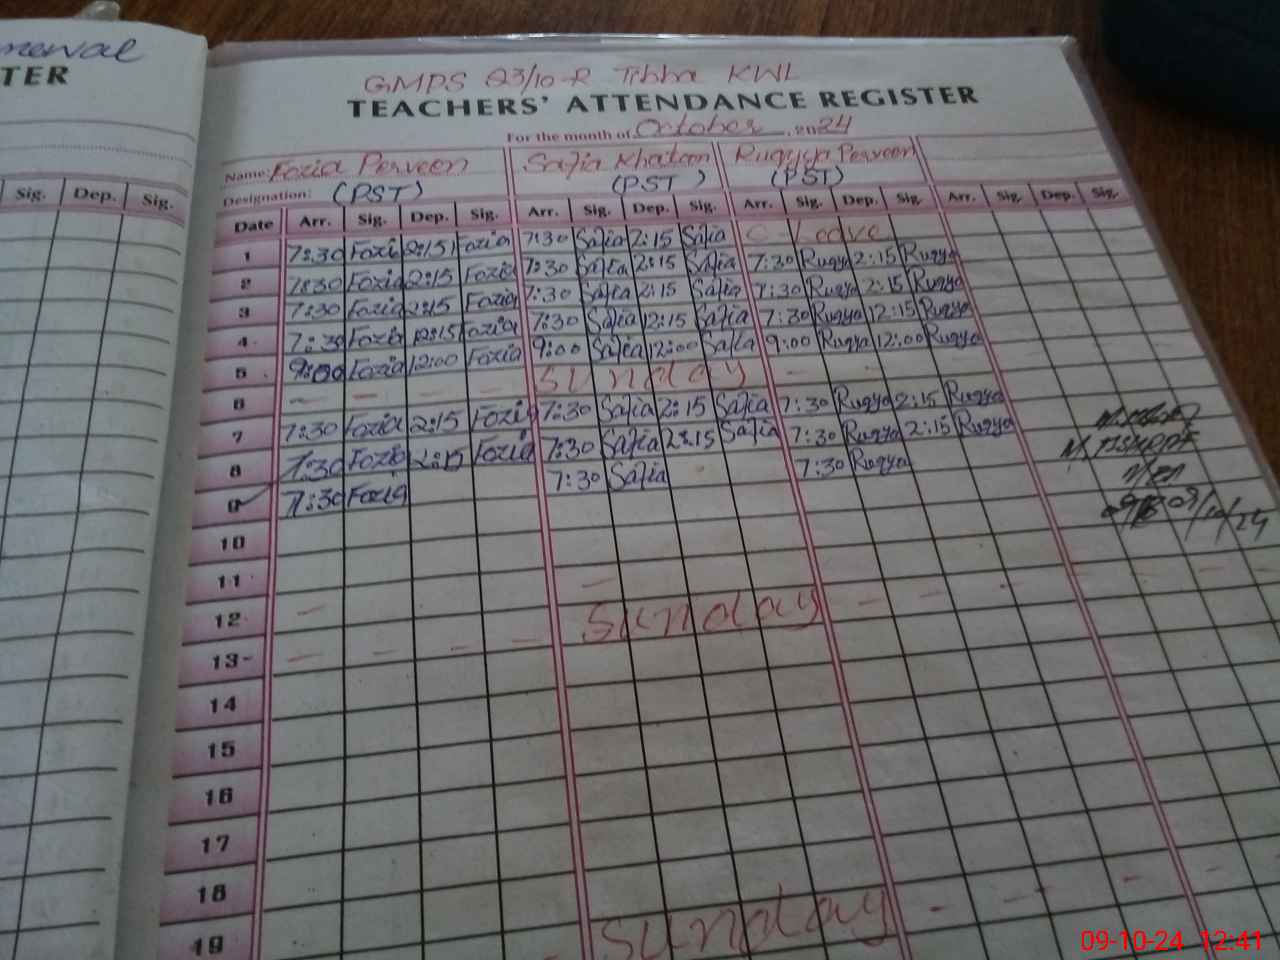 TER
GMPS 93/10-R Tibba KWL
TEACHERS' ATTENDANCE REGISTER
For the month of October, 2024
Name: Fozia Perveen Safia Khatoon Ruqyya Perveen
Designation: (PST) (PST) (PST)
Sig. Dep. Sig.
Date Arr. Sig. Dep. Sig. Arr. Sig. Dep. Sig. Arr. Sig. Dep. Sig. Arr. Sig. Dep. Sig.
1 7:30 Fozia 2:15 Fozia 7:30 Safia 2:15 Safia C-Leave
2 7:30 Fozia 2:15 Fozia 7:30 Safia 2:15 Safia 7:30 Ruqya 2:15 Ruqya
3 7:30 Fozia 2:15 Fozia 7:30 Safia 2:15 Safia 7:30 Ruqya 2:15 Ruqya
4 7:30 Fozia 12:15 Fozia 7:30 Safia 12:15 Safia 7:30 Ruqya 12:15 Ruqya
5 9:00 Fozia 12:00 Fozia 9:00 Safia 12:00 Safia 9:00 Ruqya 12:00 Ruqya
6 - - - - Sunday - -
7 7:30 Fozia 2:15 Fozia 7:30 Safia 2:15 Safia 7:30 Ruqya 2:15 Ruqya
8 7:30 Fozia 2:15 Fozia 7:30 Safia 2:15 Safia 7:30 Ruqya 2:15 Ruqya
9 7:30 Fozia 7:30 Safia 7:30 Ruqya
09/10/24
10
11
12
13 - - - - - Sunday - - -
14
15
16
17
18
19
Sunday - - -
09-10-24 12:41